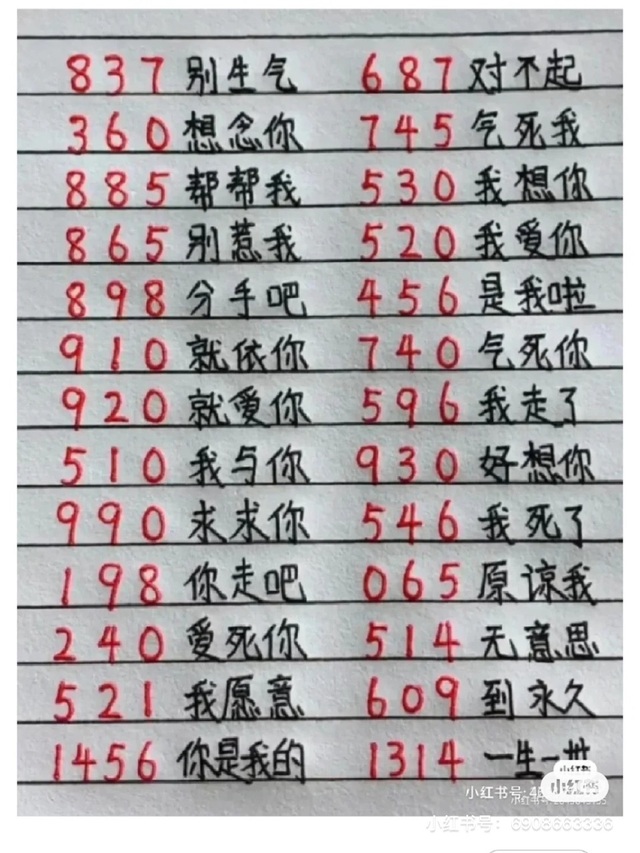 837 别生气 687 对不起
360 想念你 745 气死我
885 帮帮我 530 我想你
865 别惹我 520 我爱你
898 分手吧 456 是我啦
910 就依你 740 气死你
920 就爱你 596 我走了
510 我与你 930 好想你
990 求求你 546 我死了
198 你走吧 065 原谅我
240 爱死你 514 无意思
521 我愿意 609 到永久
1456 你是我的 1314 一生一世
小红书
小红书号:
小红书号: 6908663336